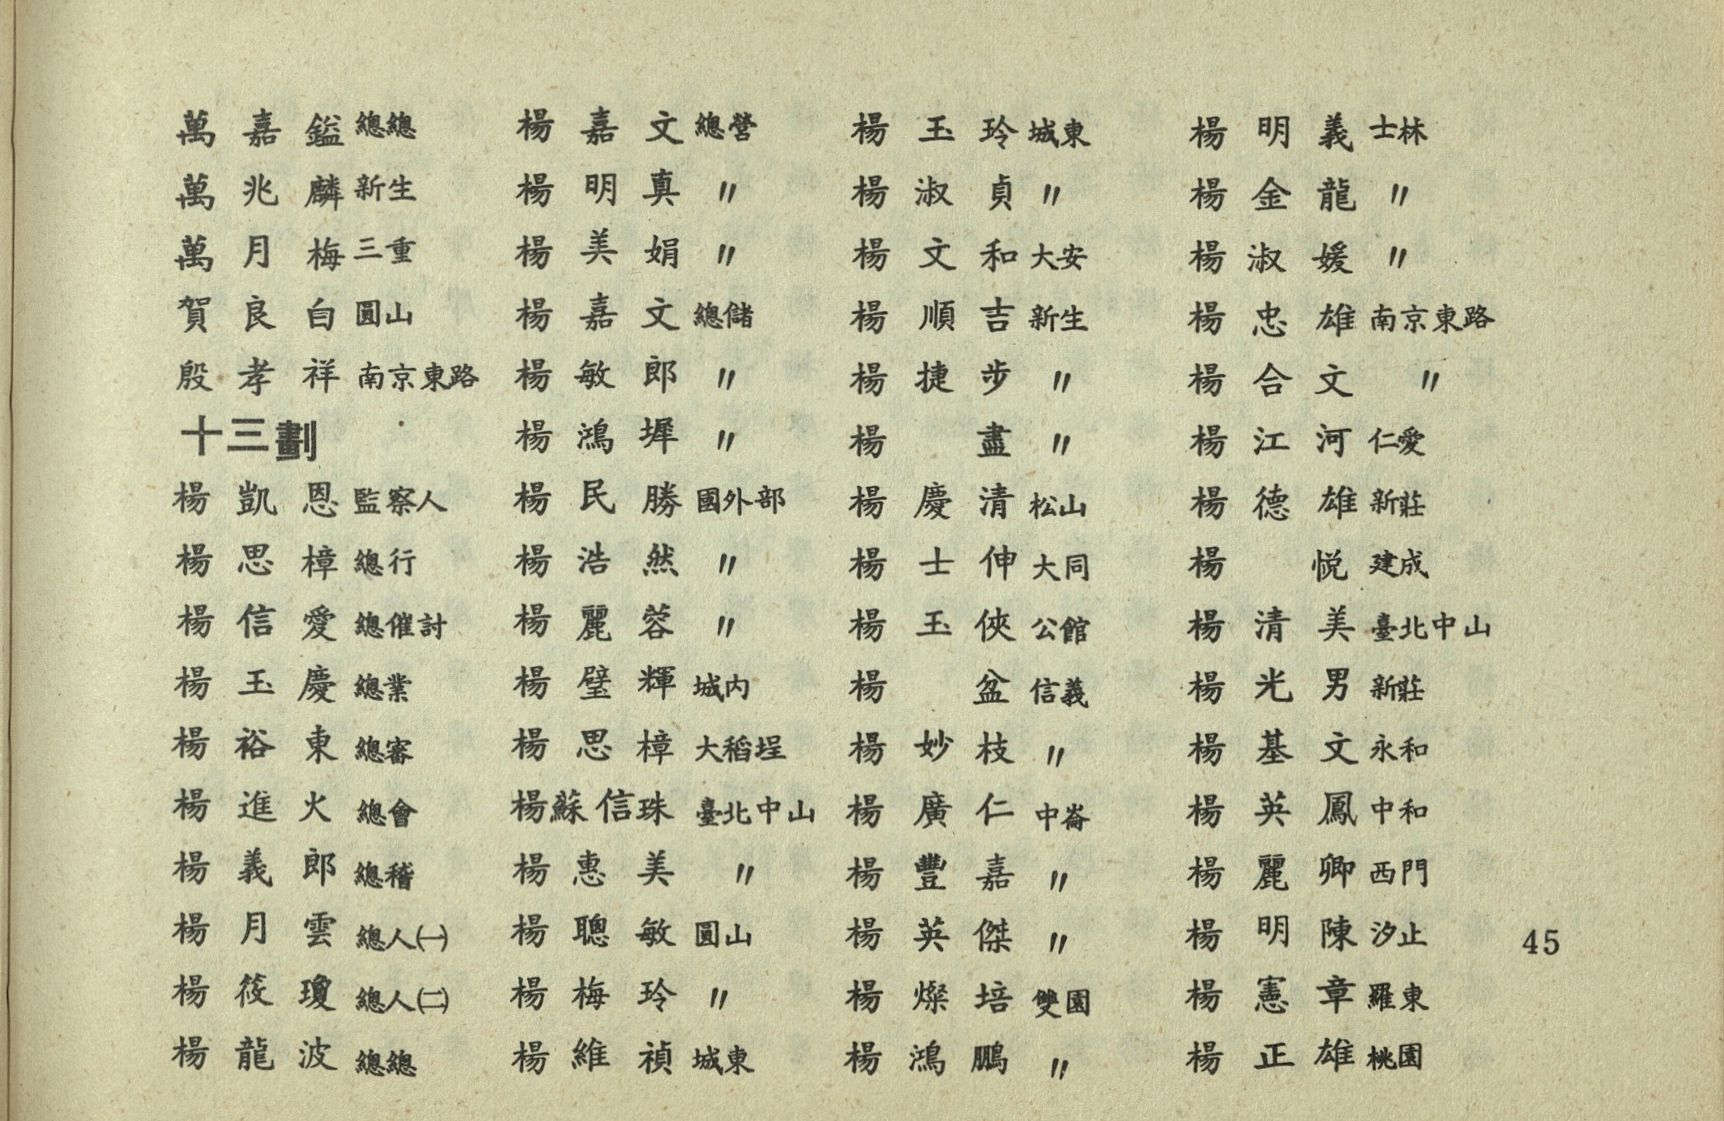 萬嘉鎰 總總
萬兆麟 新生
萬月梅 三重
賀良白 圓山
殷孝祥 南京東路
十三劃
楊凱恩 監察人
楊思樟 總行
楊信愛 總催討
楊玉慶 總業
楊裕東 總審
楊進火 總會
楊義郎 總稽
楊月雲 總人㈠
楊筱瓊 總人㈡
楊龍波 總總
楊嘉文 總營
楊明真 〃
楊美娟 〃
楊嘉文 總儲
楊敏郎 〃
楊鴻墀 〃
楊民勝 國外部
楊浩然 〃
楊麗蓉 〃
楊璧輝 城内
楊思樟 大稻埕
楊蘇信珠 臺北中山
楊惠美 〃
楊聰敏 圓山
楊梅玲 〃
楊維禎 城東
楊玉玲 城東
楊淑貞 〃
楊文和 大安
楊順吉 新生
楊捷步 〃
楊盡 〃
楊慶清 松山
楊士伸 大同
楊玉俠 公館
楊盆 信義
楊妙枝 〃
楊廣仁 中崙
楊豐嘉 〃
楊英傑 〃
楊燦培 雙園
楊鴻鵬 〃
楊明義 士林
楊金龍 〃
楊淑媛 〃
楊忠雄 南京東路
楊合文 〃
楊江河 仁愛
楊德雄 新莊
楊悅 建成
楊清美 臺北中山
楊光男 新莊
楊基文 永和
楊英鳳 中和
楊麗卿 西門
楊明陳 汐止
楊憲章 羅東
楊正雄 桃園
45